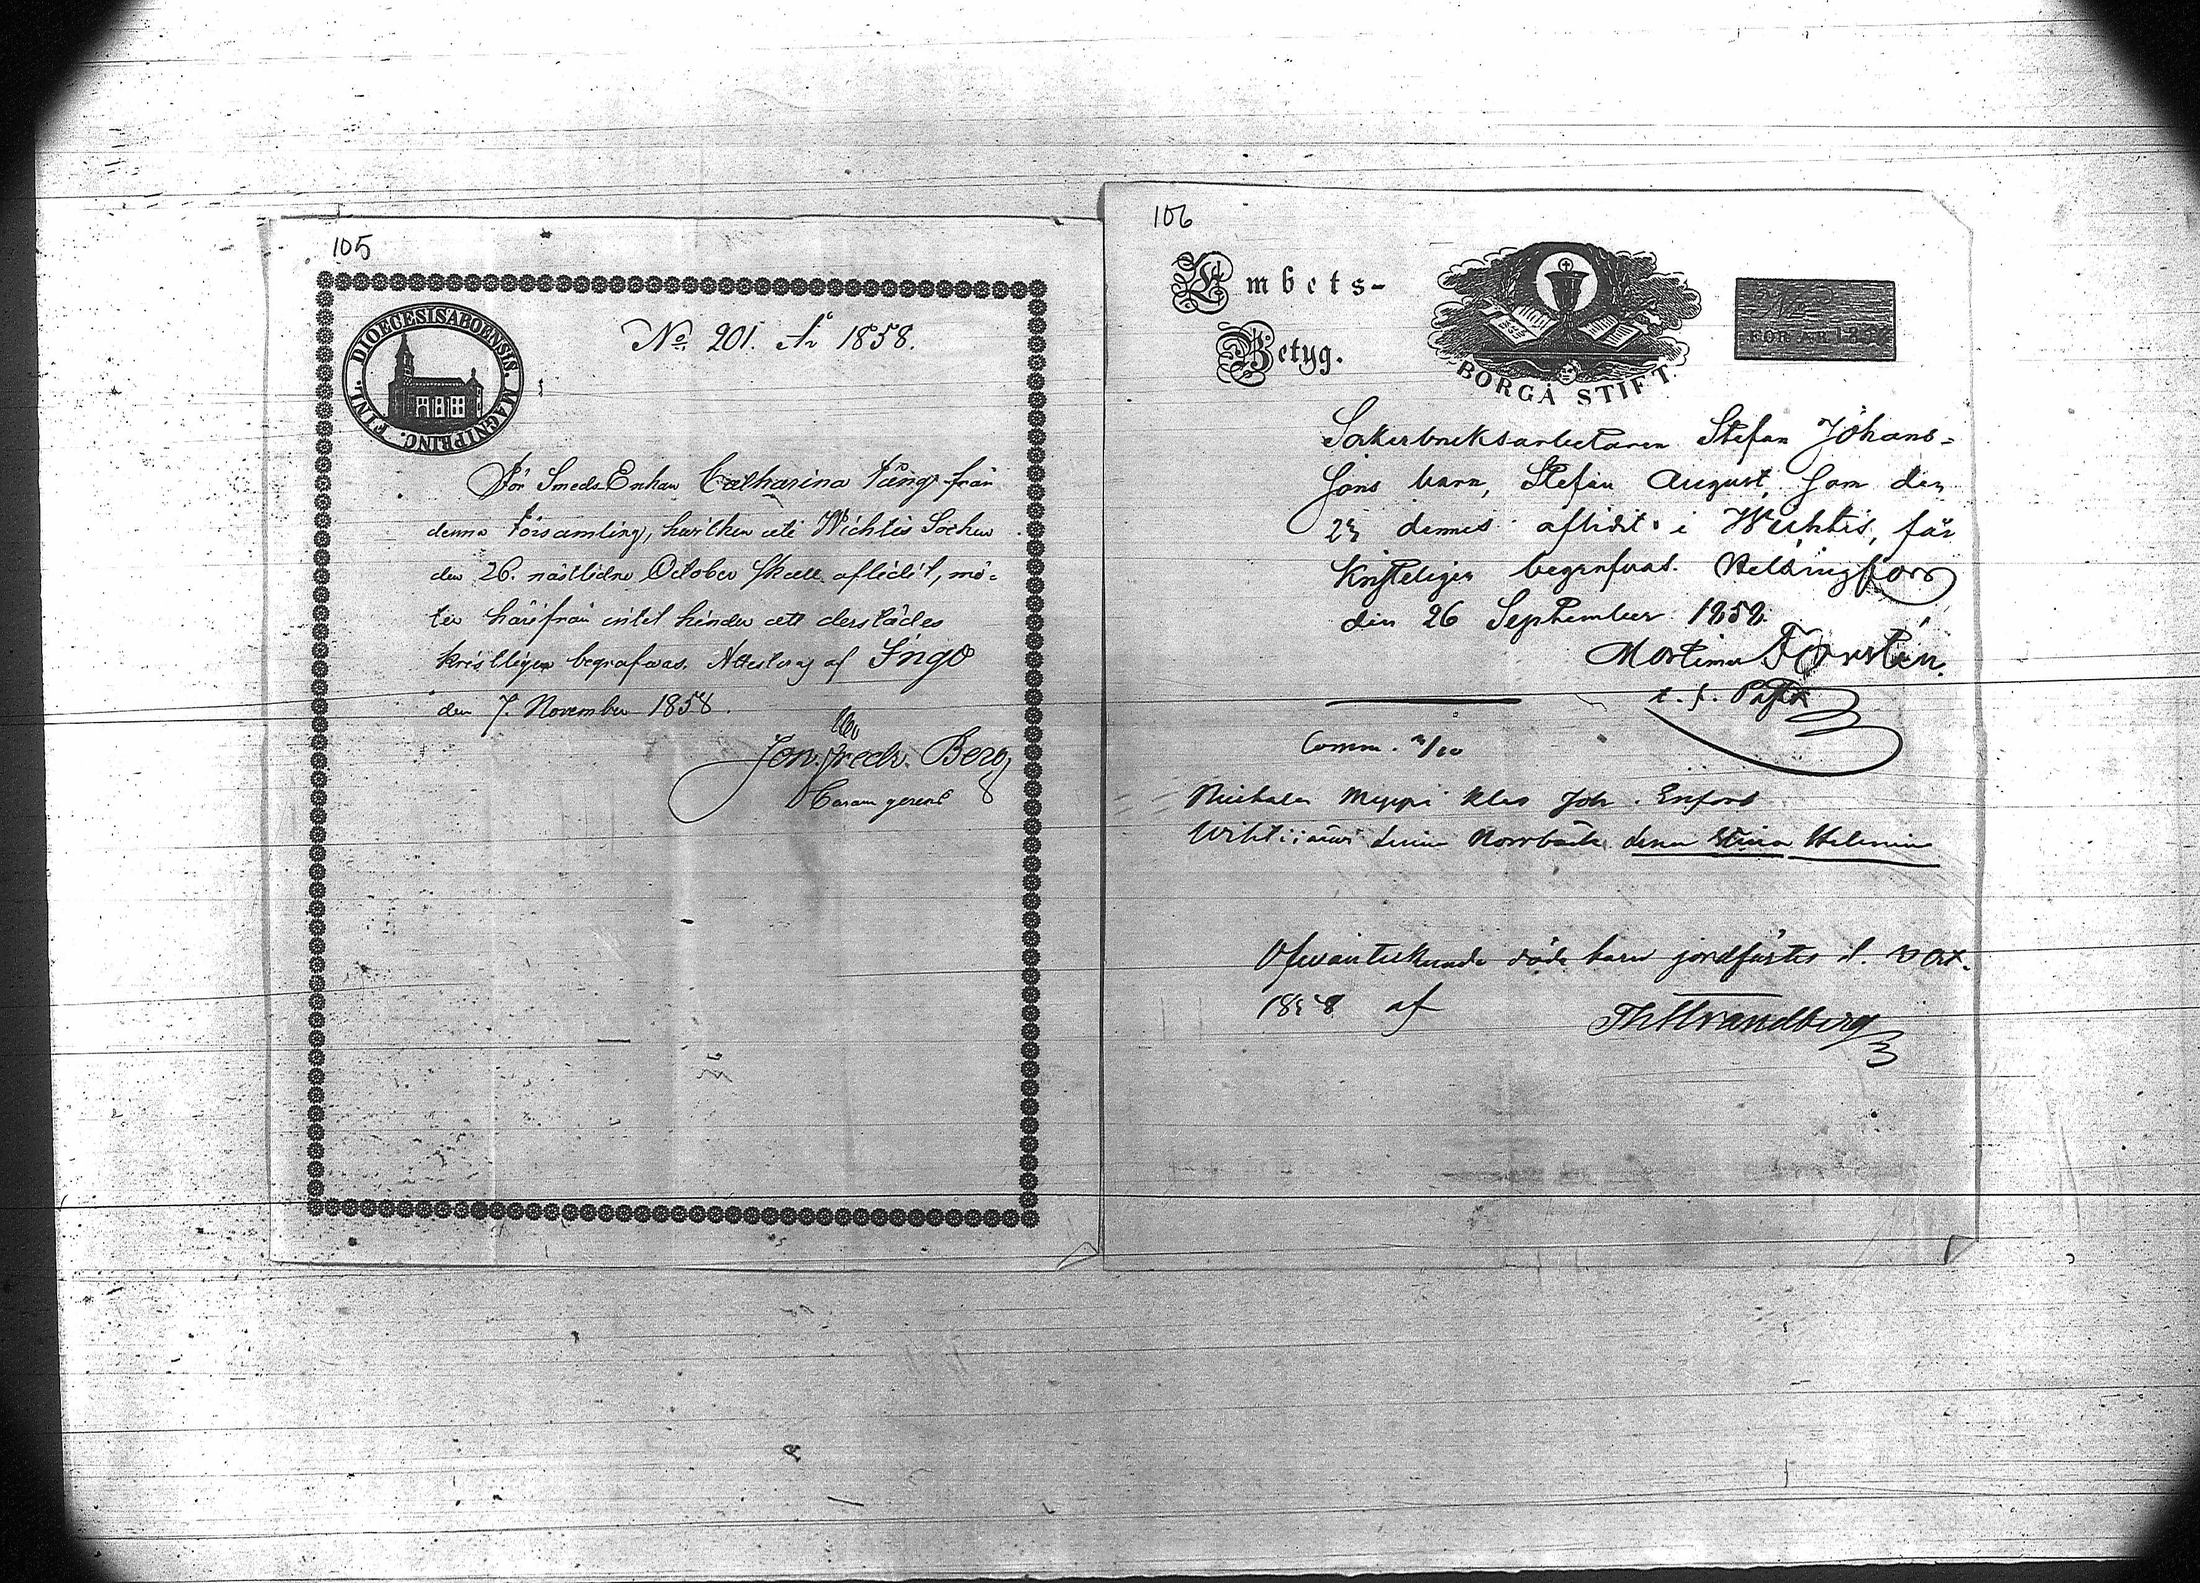 105
DIOECESIS ABOENSIS. MAGNI PRINC. FINL.
No. 201. År 1858.
För Smeds Enkan Catharina Täng från
denna Församling, hwilken uti Wichtis Socken
den 26. nästlidne October skall aflidit, mö-
ter härifrån intet hinder att derstädes
kristligen begrafwas. Attesteras af Ingo
den 7. November 1858.
Jon. Fredr. Berg
Curam gerens
106
Embets-
Betyg.
BORGÅ STIFT
FÖR ÅR 1858
Sockerbruksarbetaren Stefan Johans-
sons barn, Stefan August, som den
23 dennes aflidit i Wichtis, får
Kristeligen begrafwas. Helsingfors
den 26 September 1858.
Mortimer Forstén.
t. f. Past.
Comm.
Joh.
Norrbacka
Helenin
Ofwanteknade döda barn jordfästes d. Oct.
1858 af
Th Strandberg